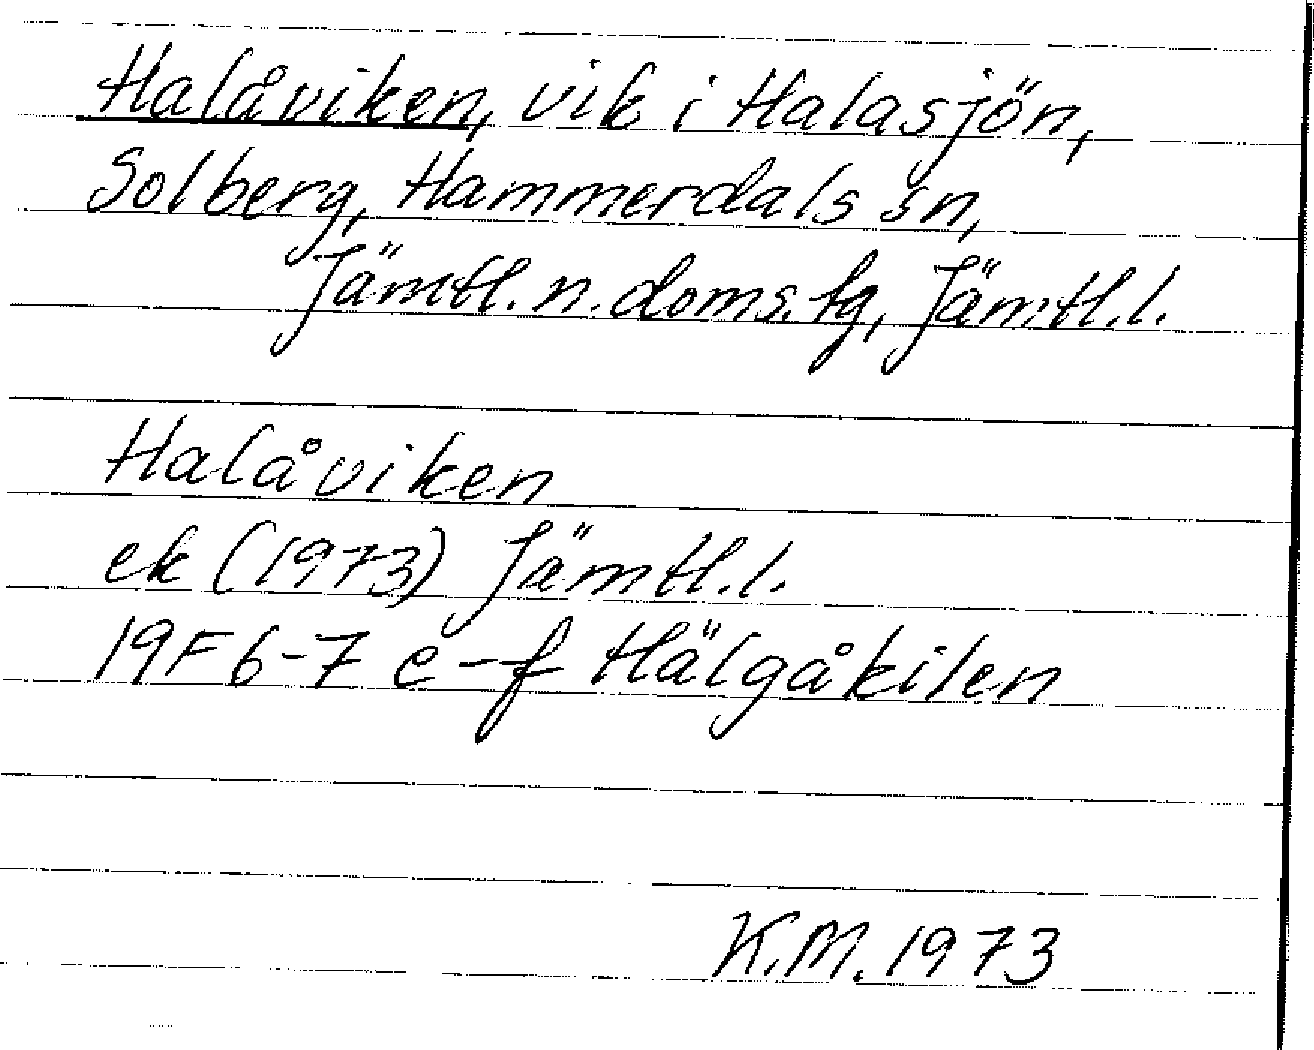 Halåviken, vik i Halasjön,
Solberg, Hammerdals sn,
Jämtl. n. doms. tg, Jämtl. l.
Halåviken
ek (1973) Jämtl. l.
19F 6-7 e-f Hälgåkilen
K.M. 1973